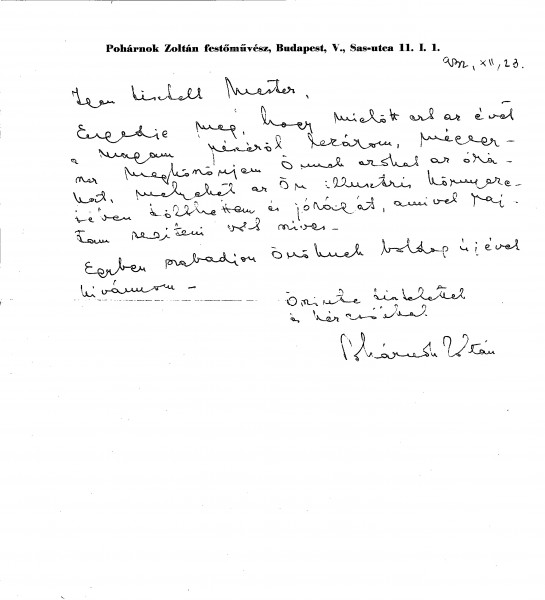 Pohárnok Zoltán festőművész, Budapest, V., Sas-utca 11. I. 1.
XII, 23.
Igen tisztelt Mester,
Engedje meg, hogy mielőtt ezt az évet
a magam részéről lezárom, mégegy-
szer megköszönjem Önnek azokat az órá-
kat, melyeket az Ön illusztris környeze-
tében tölthettem és jóságát, amivel raj-
tam segíteni volt szíves –
Egyben szabadjon Önöknek boldog újévet
kívánnom –
Őszinte tisztelettel
és kézcsókkal
Pohárnok Zoltán